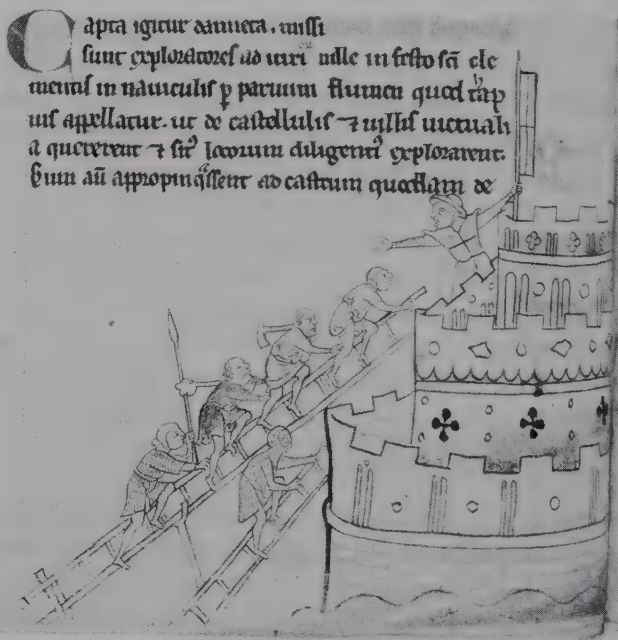 Capta igitur damieta. missi
sunt exploratores ad mił ille in festo sc̄i cle
mentis in nauiculis ꝑ paruum flumen quod taph
nis appellatur. ut de castellulis ⁊ uillis uictuali
a quererent ⁊ sitꝰ locorum diligentiꝰ explorarent.
Cum aū appropinqͣssent ad castrum quoddam de